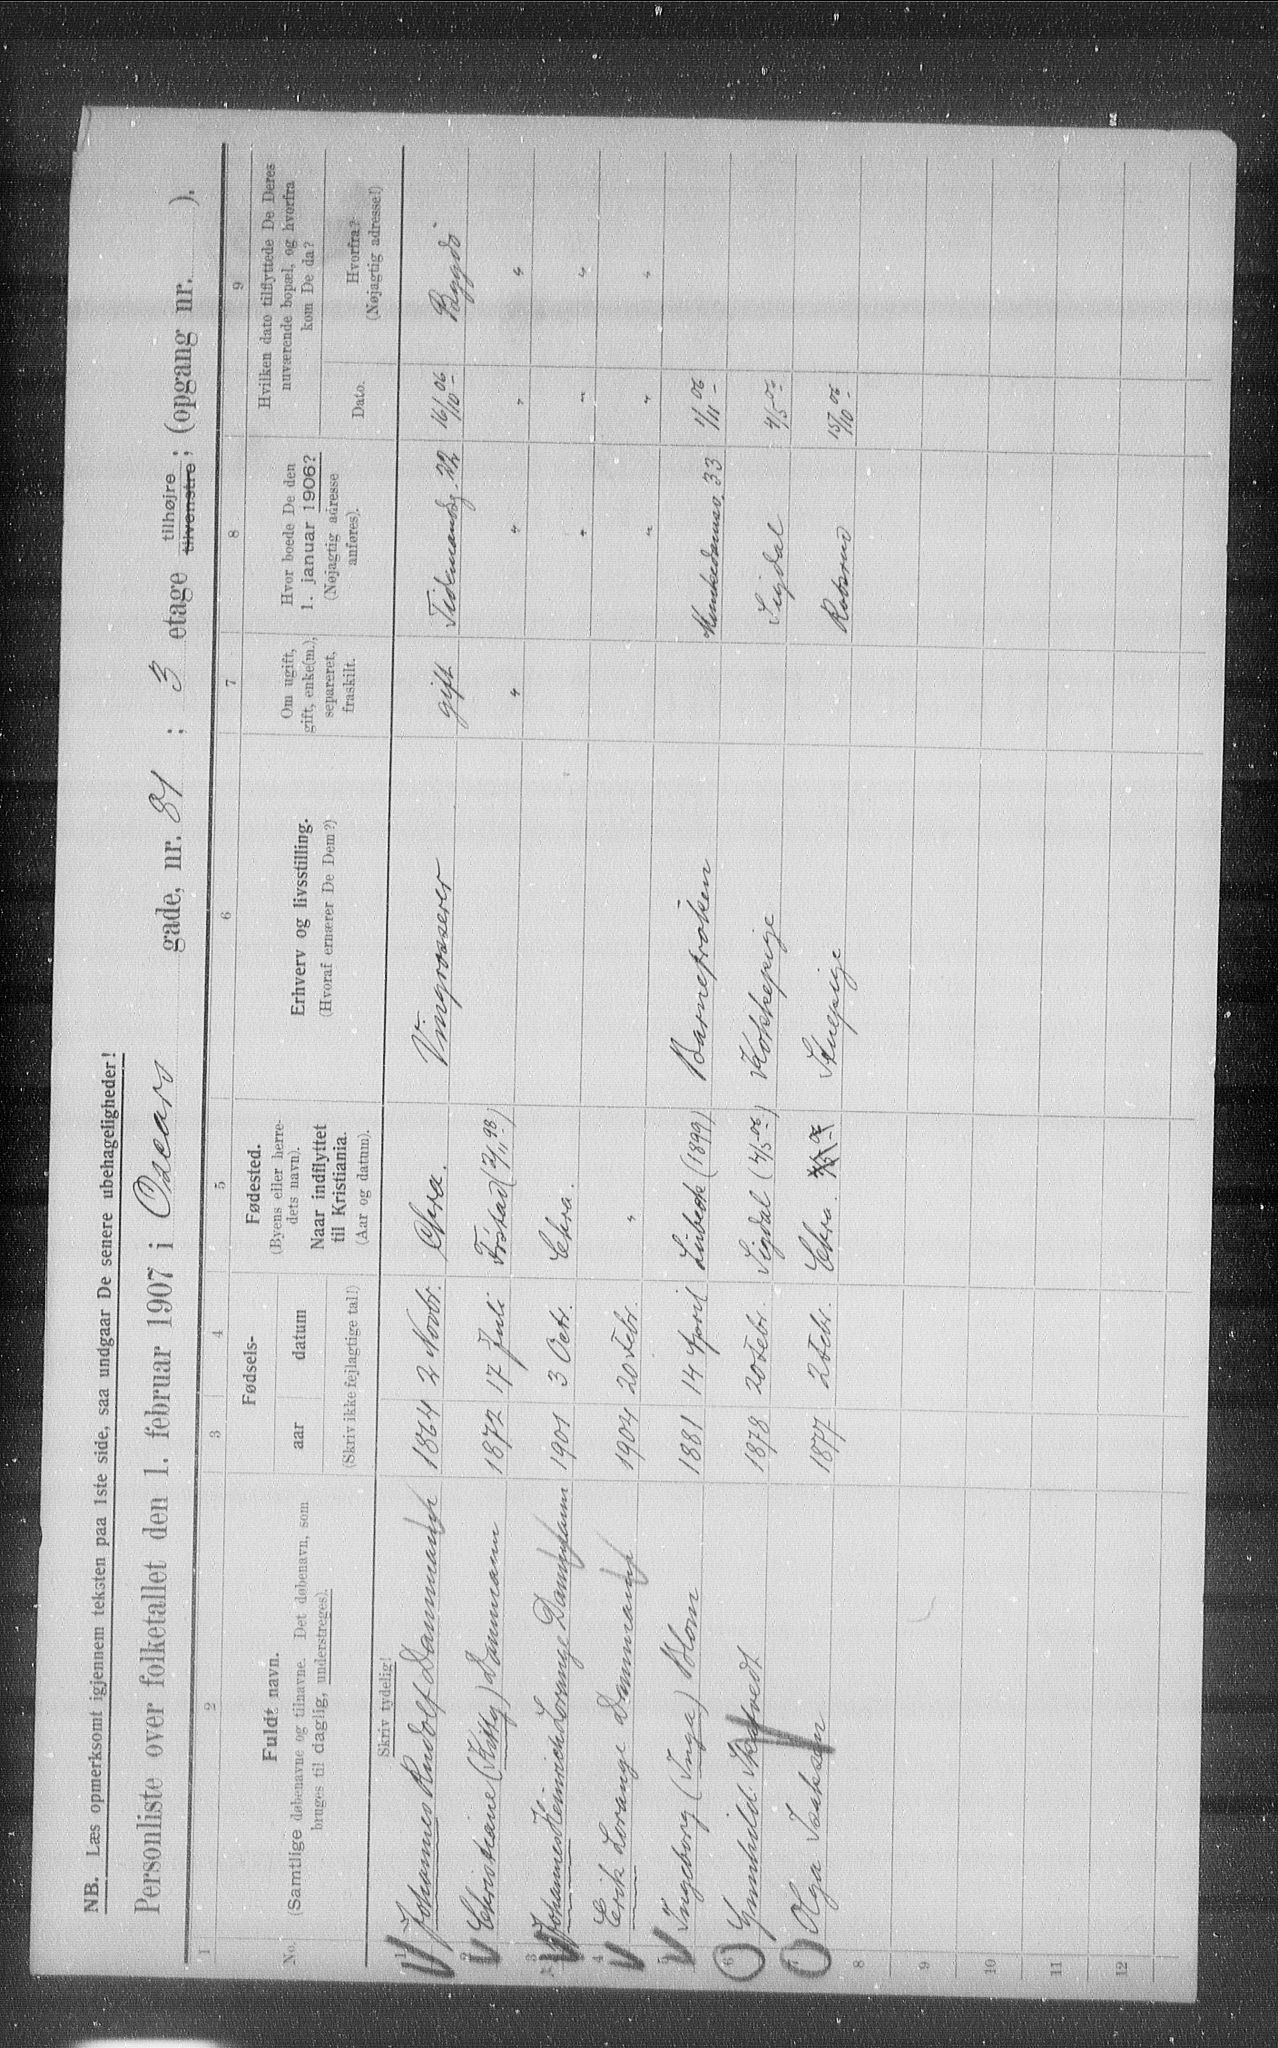 NB. Læs opmerksomt igjennem teksten paa 1ste side, saa undgaar De senere ubehageligheder!
Personliste over folketallet den 1. februar 1907 i Oscars gade, nr. 81 ; 3 etage tilhøjre tilvenstre; (opgang nr. ).
1 2 3 4 5 6 7 8 9
No.
Fuldt navn.
(Samtlige døbenavne og tilnavne. Det døbenavn, som
bruges til daglig, understreges).
Skriv tydelig!
Fødsels-
aar datum
(Skriv ikke fejlagtige tal!)
Fødested.
(Byens eller herre-
dets navn).
Naar indflyttet
til Kristiania.
(Aar og datum).
Erhverv og livsstilling.
(Hvoraf ernærer De Dem?)
Om ugift,
gift, enke(m.),
separeret,
fraskilt.
Hvor boede De den
1. januar 1906?
(Nøjagtig adresse
anføres).
Hvilken dato tilflyttede De Deres
nuværende bopæl, og hvorfra
kom De da?
Dato.
Hvorfra?
(Nøjagtig adresse!)
1 Johannes Rudolf Dannmann 1864 2 Novbr. Chra. Vingrosserer gift Tidemandsg. 22 16/10 06 Bygdö
2 Christiane (Kitty) Dannmann 1872 17 Juli (2/11 98) " " " "
3 Johannes Heinrich Lorange Dannmann 1901 3 Octr. Chra. " " "
4 Erik Lorange Dannmann 1904 20 Febr. " " " "
5 Ingeborg (Inga) Blom 1881 14 April Lübeck (1899) Barnefröken Munkedamsv. 33 1/11 06
6 Gunhild 1878 20 Febr. Sigdal (4/5 06) Kokkepige Sigdal 4/5 06
7 Olga Isaksen 1877 2 Febr. Chra. Stuepige 15/10 06
8
9
10
11
12